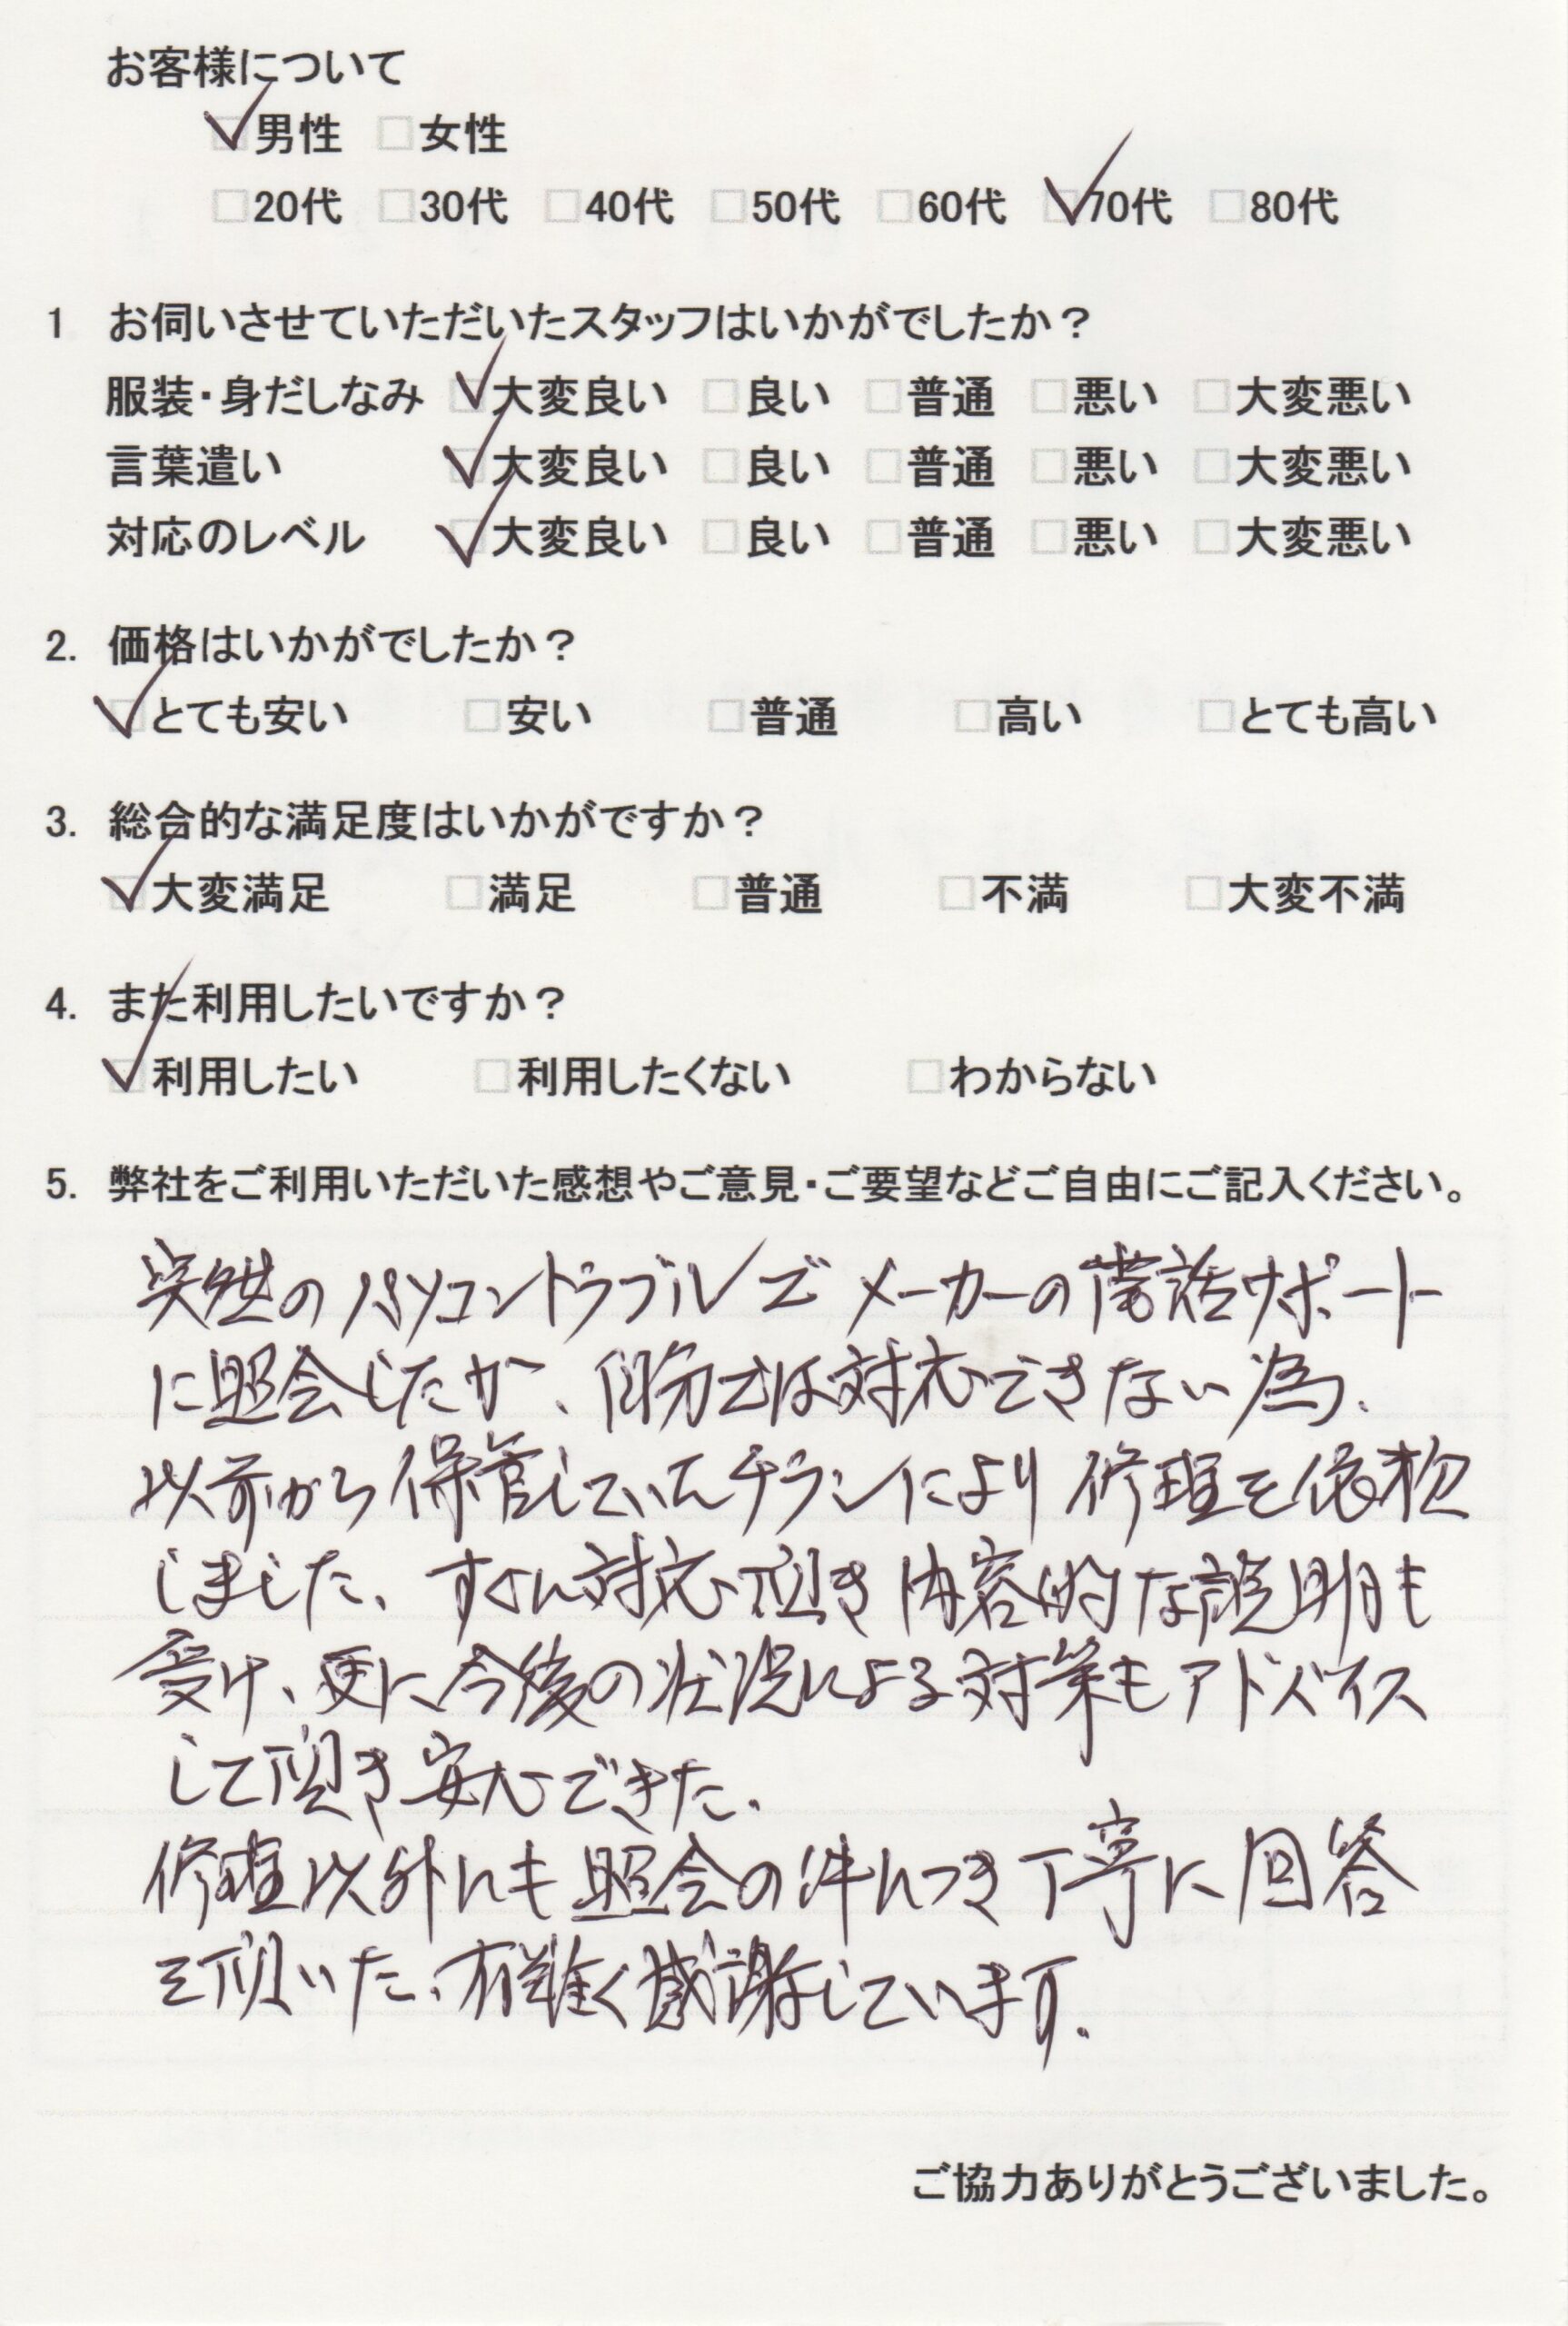 お客様について
☑男性 □女性
□20代 □30代 □40代 □50代 □60代 ☑70代 □80代
1 お伺いさせていただいたスタッフはいかがでしたか？
服装・身だしなみ ☑大変良い □良い □普通 □悪い □大変悪い
言葉遣い ☑大変良い □良い □普通 □悪い □大変悪い
対応のレベル ☑大変良い □良い □普通 □悪い □大変悪い
2. 価格はいかがでしたか？
☑とても安い □安い □普通 □高い □とても高い
3. 総合的な満足度はいかがですか？
☑大変満足 □満足 □普通 □不満 □大変不満
4. また利用したいですか？
☑利用したい □利用したくない □わからない
5. 弊社をご利用いただいた感想やご意見・ご要望などご自由にご記入ください。
突然のパソコントラブルでメーカーの電話サポート
に照会したが、自分では対応できない為、
以前から保管していたチラシにより修理を依頼
しました、すぐに対応頂き内容的な説明も
受け、更に今後の状況による対策もアドバイス
して頂き安心できた.
修理以外にも照会の件につき丁寧に回答
を頂いた、有難く感謝しています.
ご協力ありがとうございました。